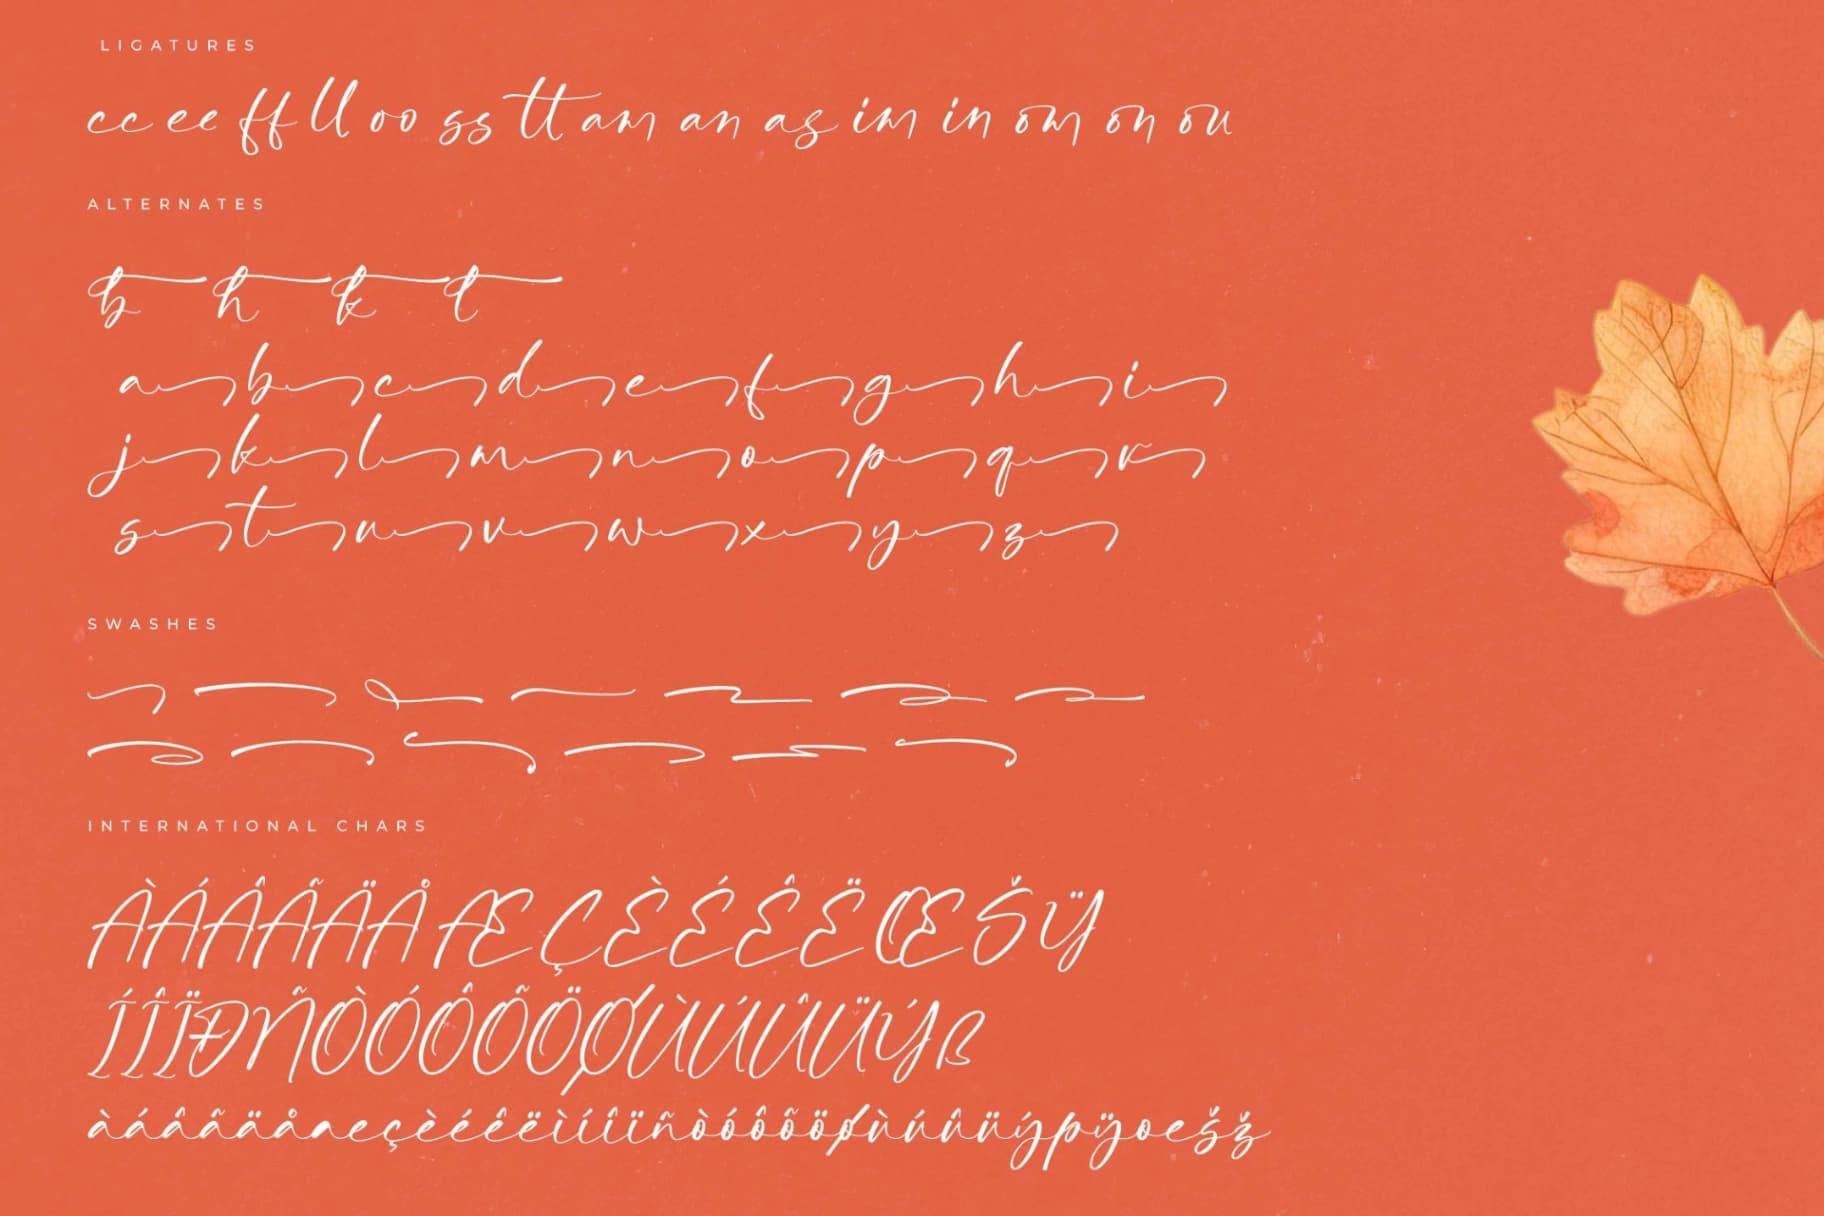 LIGATURES
cc ee ff ll oo ss tt am an as im in om on ou
ALTERNATES
b h k t
a b c d e f g h i
j k l m n o p q r
s t u v w x y z
SWASHES
INTERNATIONAL CHARS
ÀÁÂÃÄÅÆÇÈÉÊËŒŠŸ
ÍÎÏÐÑÒÓÔÕÖØÙÚÛÜÝß
àáâãäåæçèéêëìíîïñòóôõöøùúûüýþÿœšž